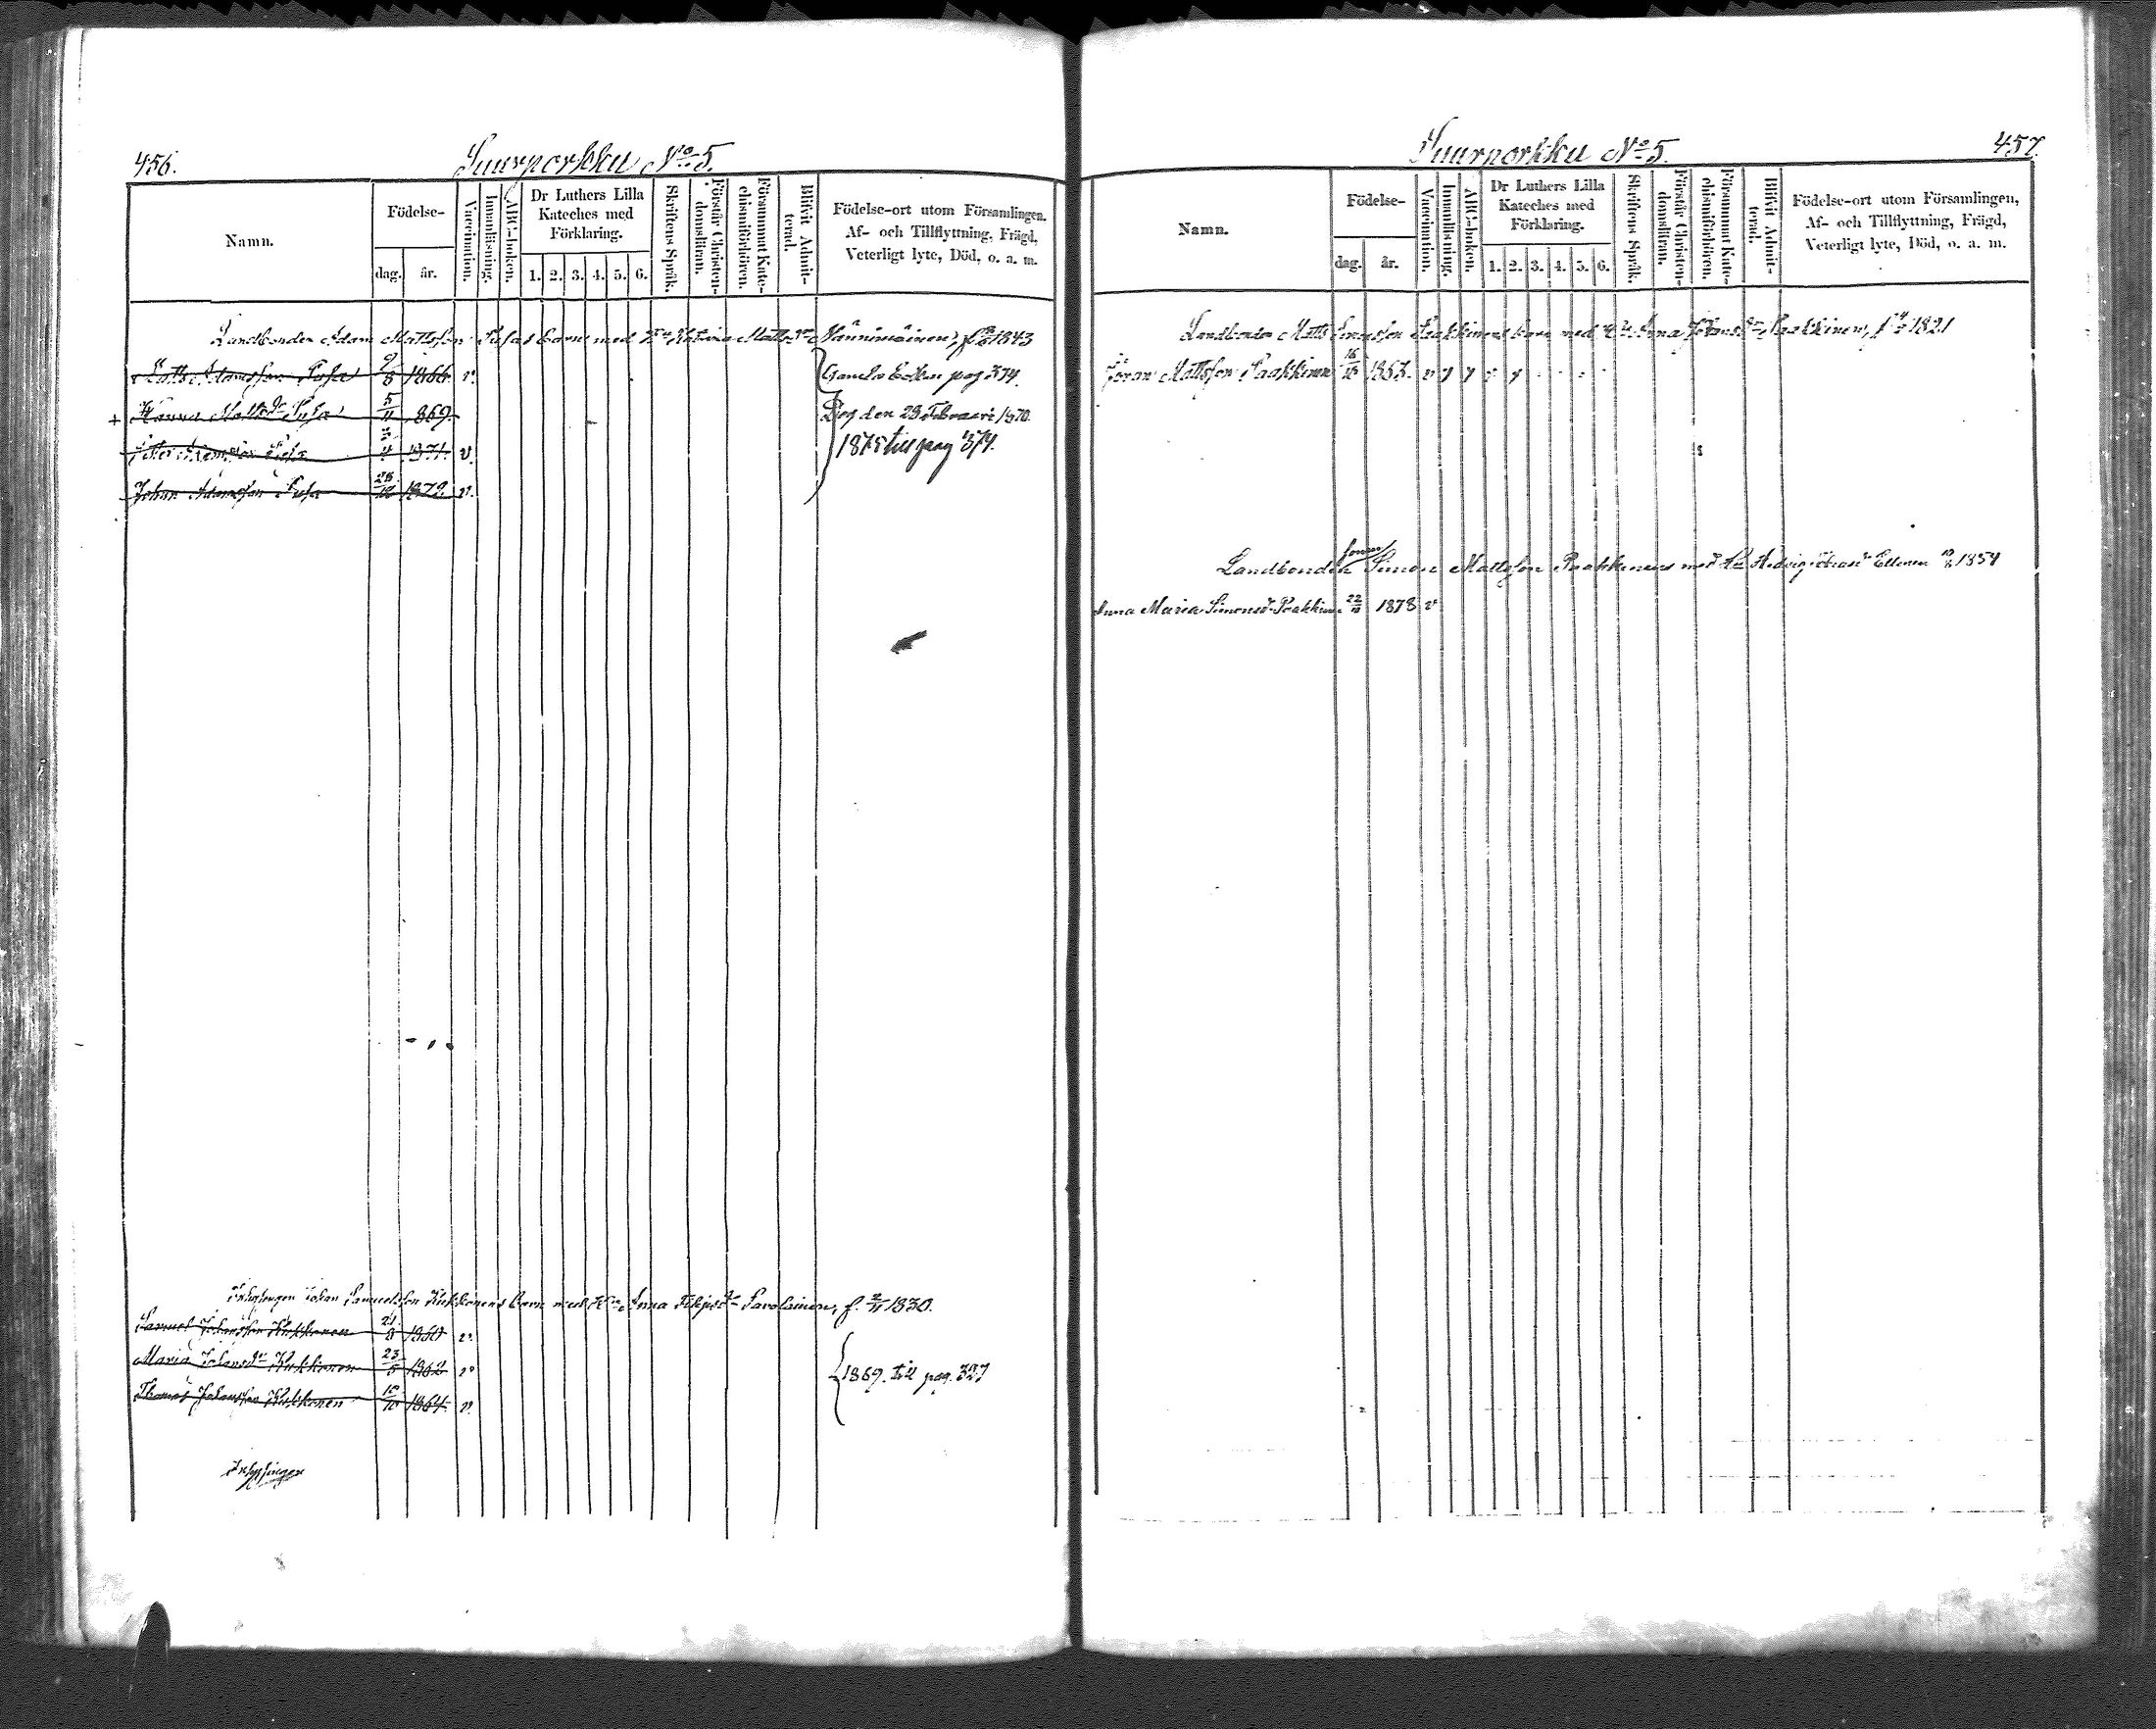 456.
Suurporkku No 5.
Namn.
Födelse-
dag.
år.
Vaccination.
Innanläsning.
ABC-boken.
Dr Luthers Lilla
Kateches med
Förklaring.
1. 2. 3. 4. 5. 6.
Skriftens Språk.
Förstår Christen-
domsläran.
Försummat Kate-
chismiförhören.
Blifvit Admit-
terad.
Födelse-ort utom Församlingen,
Af- och Tillflyttning, Frägd,
Veterligt lyte, Död, o. a. m.
Landbonden Adam Mattsson Pusas barn med Hu Katarina Mattsdr Nänimäinen, 1843
Adamsson Pusa 9/8 1866. v.
Gamla boken pag 374.
+ Hanna Pusa 5/11 1869.
Dog den 23 Februari 1870.
Pusa 1871. v.
1875 till pag 374.
Johan Adamsson Pusa 1872. v.
Inhysingen Johan Samuelsson Kukkonens barn med Hu Anna Filipsdr Savolainen, f. 2/11 1830.
Samuel Johansson Kukkonen 21/8 1860 v.
Maria Johansdr Kukkonen 23/5 1862 v
1869. till pag. 327
Thomas Johansson Kukkonen 10/10 1864. v.
Inhysingen
Suurporkku No 5.
457.
Namn.
Födelse-
dag.
år.
Vaccination.
Innanläsning.
ABC-boken.
Dr Luthers Lilla
Kateches med
Förklaring.
1. 2. 3. 4. 5. 6.
Skriftens Språk.
Förstår Christen-
domsläran.
Försummat Kate-
chismiförhören.
Blifvit Admit-
terad.
Födelse-ort utom Församlingen,
Af- och Tillflyttning, Frägd,
Veterligt lyte, Död, o. a. m.
Landbonden Matts Paakkinens barn med Hu Anna Paakkinen, 1821
Jöran Mattsson Paakkinen 16/10 1863. v y y y y
sonen
Landbonden Simon Mattsson Paakkinens med Hu Hedvig Ellonen 1854
Anna Maria Simonsdr Paakkinen 22/11 1878 v